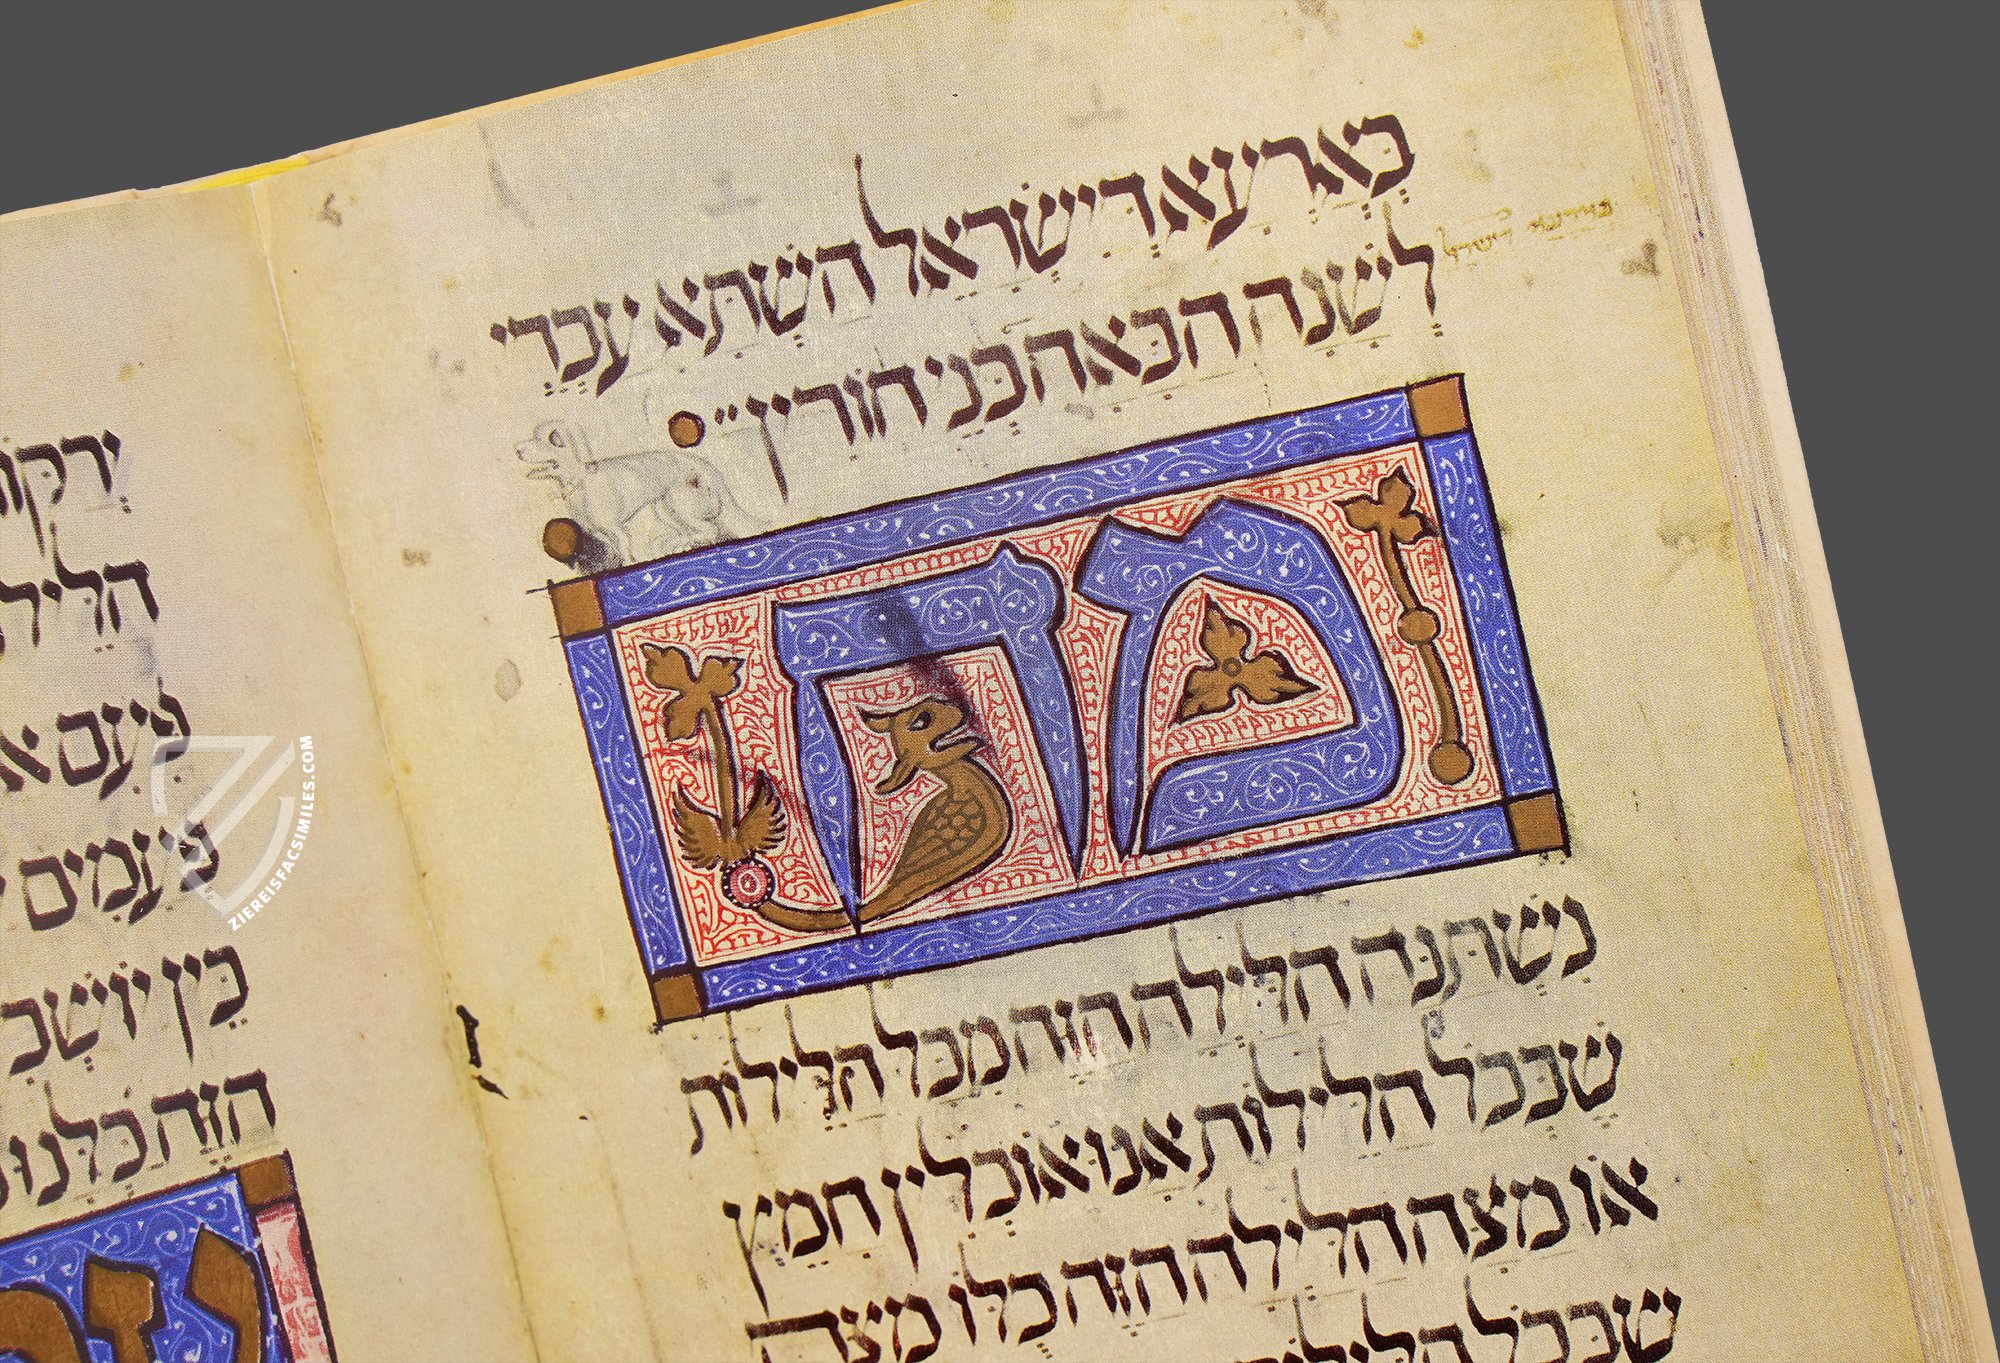 בארעא דישראל השתא עבדי
לשנה הבאה בני חורין
מה
נשתנה הלילה הזה מכל הלילות
שבכל הלילות אנו אוכלין חמץ
או מצה הלילה הזה כלו מצה
שבכל הלילות
ירקו
הליל
פעם א
פעמים
בין יושב
הזה כלנו
ZIEREISFACSIMILES.COM